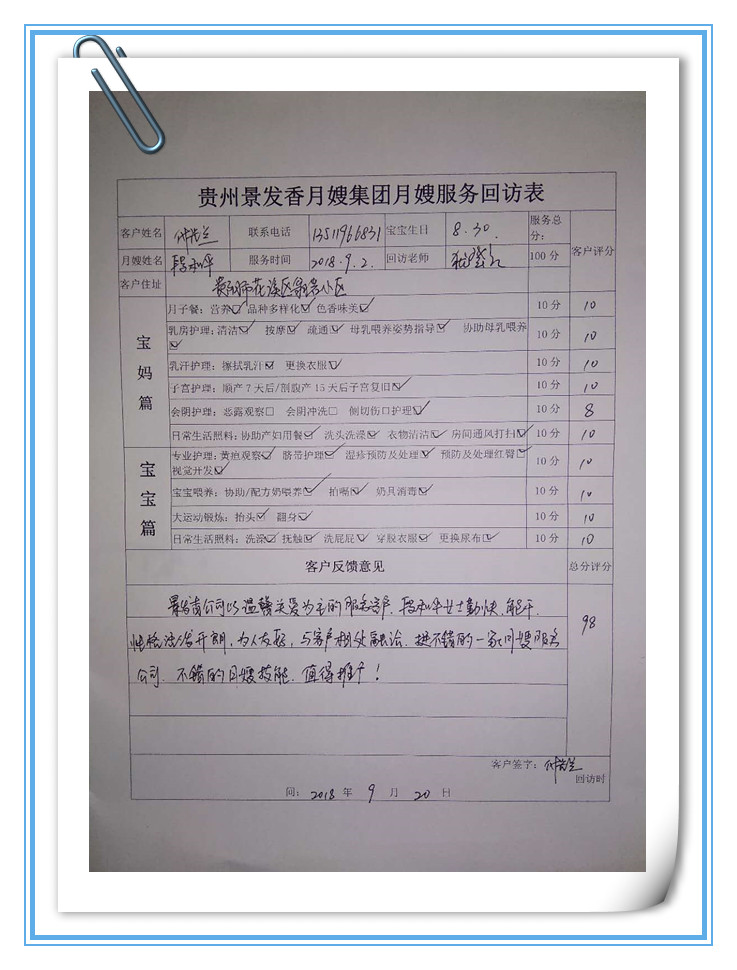 贵州景发香月嫂集团月嫂服务回访表
客户姓名 付先兰 联系电话 13511966831 宝宝生日 8.30. 服务总分: 客户评分
月嫂姓名 段和华 服务时间 2018.9.2. 回访老师 100分
客户住址 贵阳市花溪区 小区
宝妈篇
月子餐:营养☑品种多样化☑ 色香味美☑ 10分 10
乳房护理:清洁☑ 按摩☑ 疏通☑ 母乳喂养姿势指导☑ 协助母乳喂养☑ 10分 10
乳汗护理:擦拭乳汁☑ 更换衣服☑ 10分 10
子宫护理:顺产7天后/剖腹产15天后子宫复旧☑ 10分 10
会阴护理:恶露观察□ 会阴冲洗□ 侧切伤口护理☑ 10分 8
日常生活照料:协助产妇用餐☑ 洗头洗澡☑ 衣物清洁☑ 房间通风打扫☑ 10分 10
宝宝篇
专业护理:黄疸观察☑ 脐带护理☑ 湿疹预防及处理☑ 预防及处理红臀☑
视觉开发☑ 10分 10
宝宝喂养:协助/配方奶喂养☑ 拍嗝☑ 奶具消毒☑ 10分 10
大运动锻炼:抬头☑ 翻身☑ 10分 10
日常生活照料:洗澡☑ 抚触☑ 洗屁屁☑ 穿脱衣服☑ 更换尿布☑ 10分 10
客户反馈意见 总分评分
景发香公司以温馨关爱为主的服务客户,段和华女士勤快、能干、 98
性格活泼开朗,为人友好,与客户相处融洽.挺不错的一家月嫂服务
公司.不错的月嫂技能.值得推广!
客户签字:付先兰
回访时
间:2018年 9 月 20 日